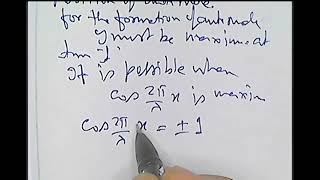 for the formation of antinode
y must be maximum at
time "t"
It is possible when
cos 2π/λ x is maxim
cos 2π/λ x = ± 1